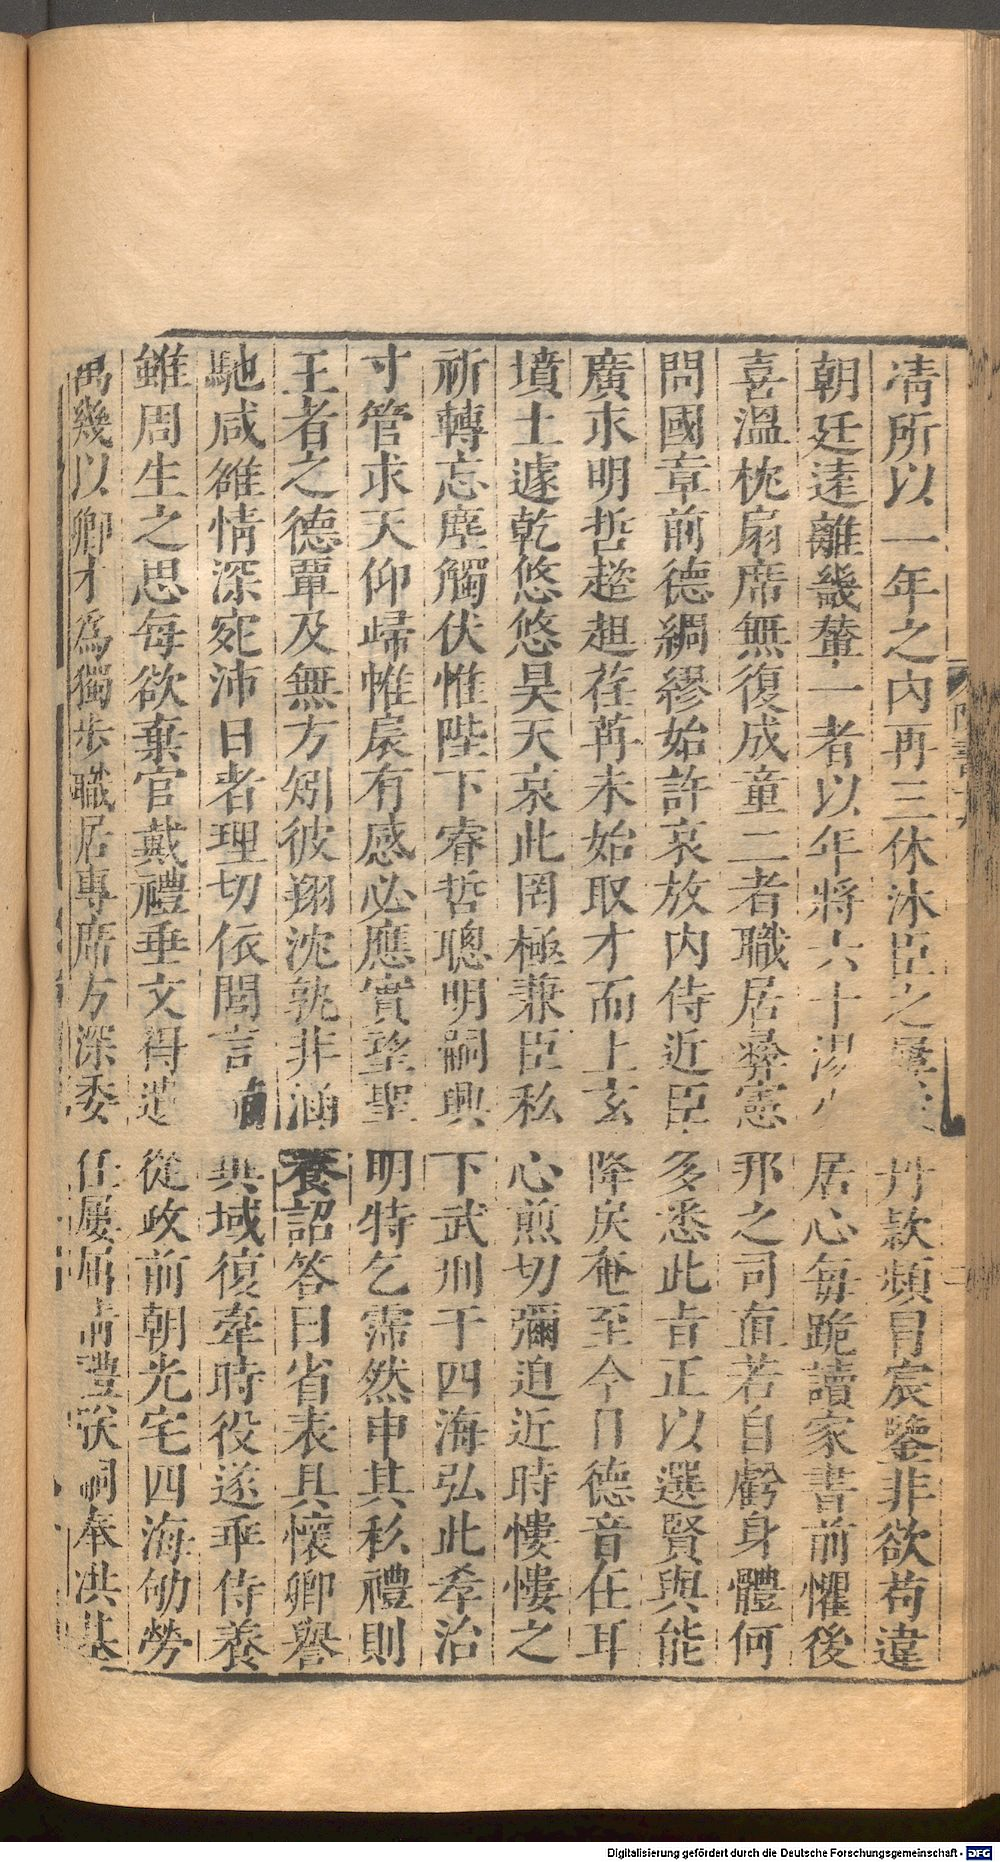 凊所以一年之內再三休沐臣之屢披丹款頻冒宸鑒非欲苟違
朝廷遠離畿輦一者以年將六十湯火居心每跪讀家書前懼後
喜溫枕扇席無復成童二者職居彞憲邦之司直若自虧身體何
問國章前德綢繆始許哀放內侍近臣多悉此旨正以選賢與能
廣求明哲趑趄荏苒未始取才而上玄降戾奄至今日德音在耳
墳土遽乾悠悠昊天哀此罔極兼臣私心煎切彌迫近時慺慺之
祈轉忘塵觸伏惟陛下睿哲聰明嗣興下武刑于四海弘此孝治
寸管求天仰歸帷扆有感必應實望聖明特乞霈然申其私禮則
王者之德覃及無方矧彼翔沈孰非涵養詔答曰省表具懷卿譽
馳咸雒情深宛沛日者理切依閭言異域復牽時役遂乖侍養
雖周生之思每欲棄官戴禮垂文得遺從政前朝光宅四海劬勞
萬幾以卿才為獨步職居專席方深委任屢屈情禮朕嗣奉洪基
陳書十九
二
Digitalisierung gefördert durch die Deutsche Forschungsgemeinschaft - DFG